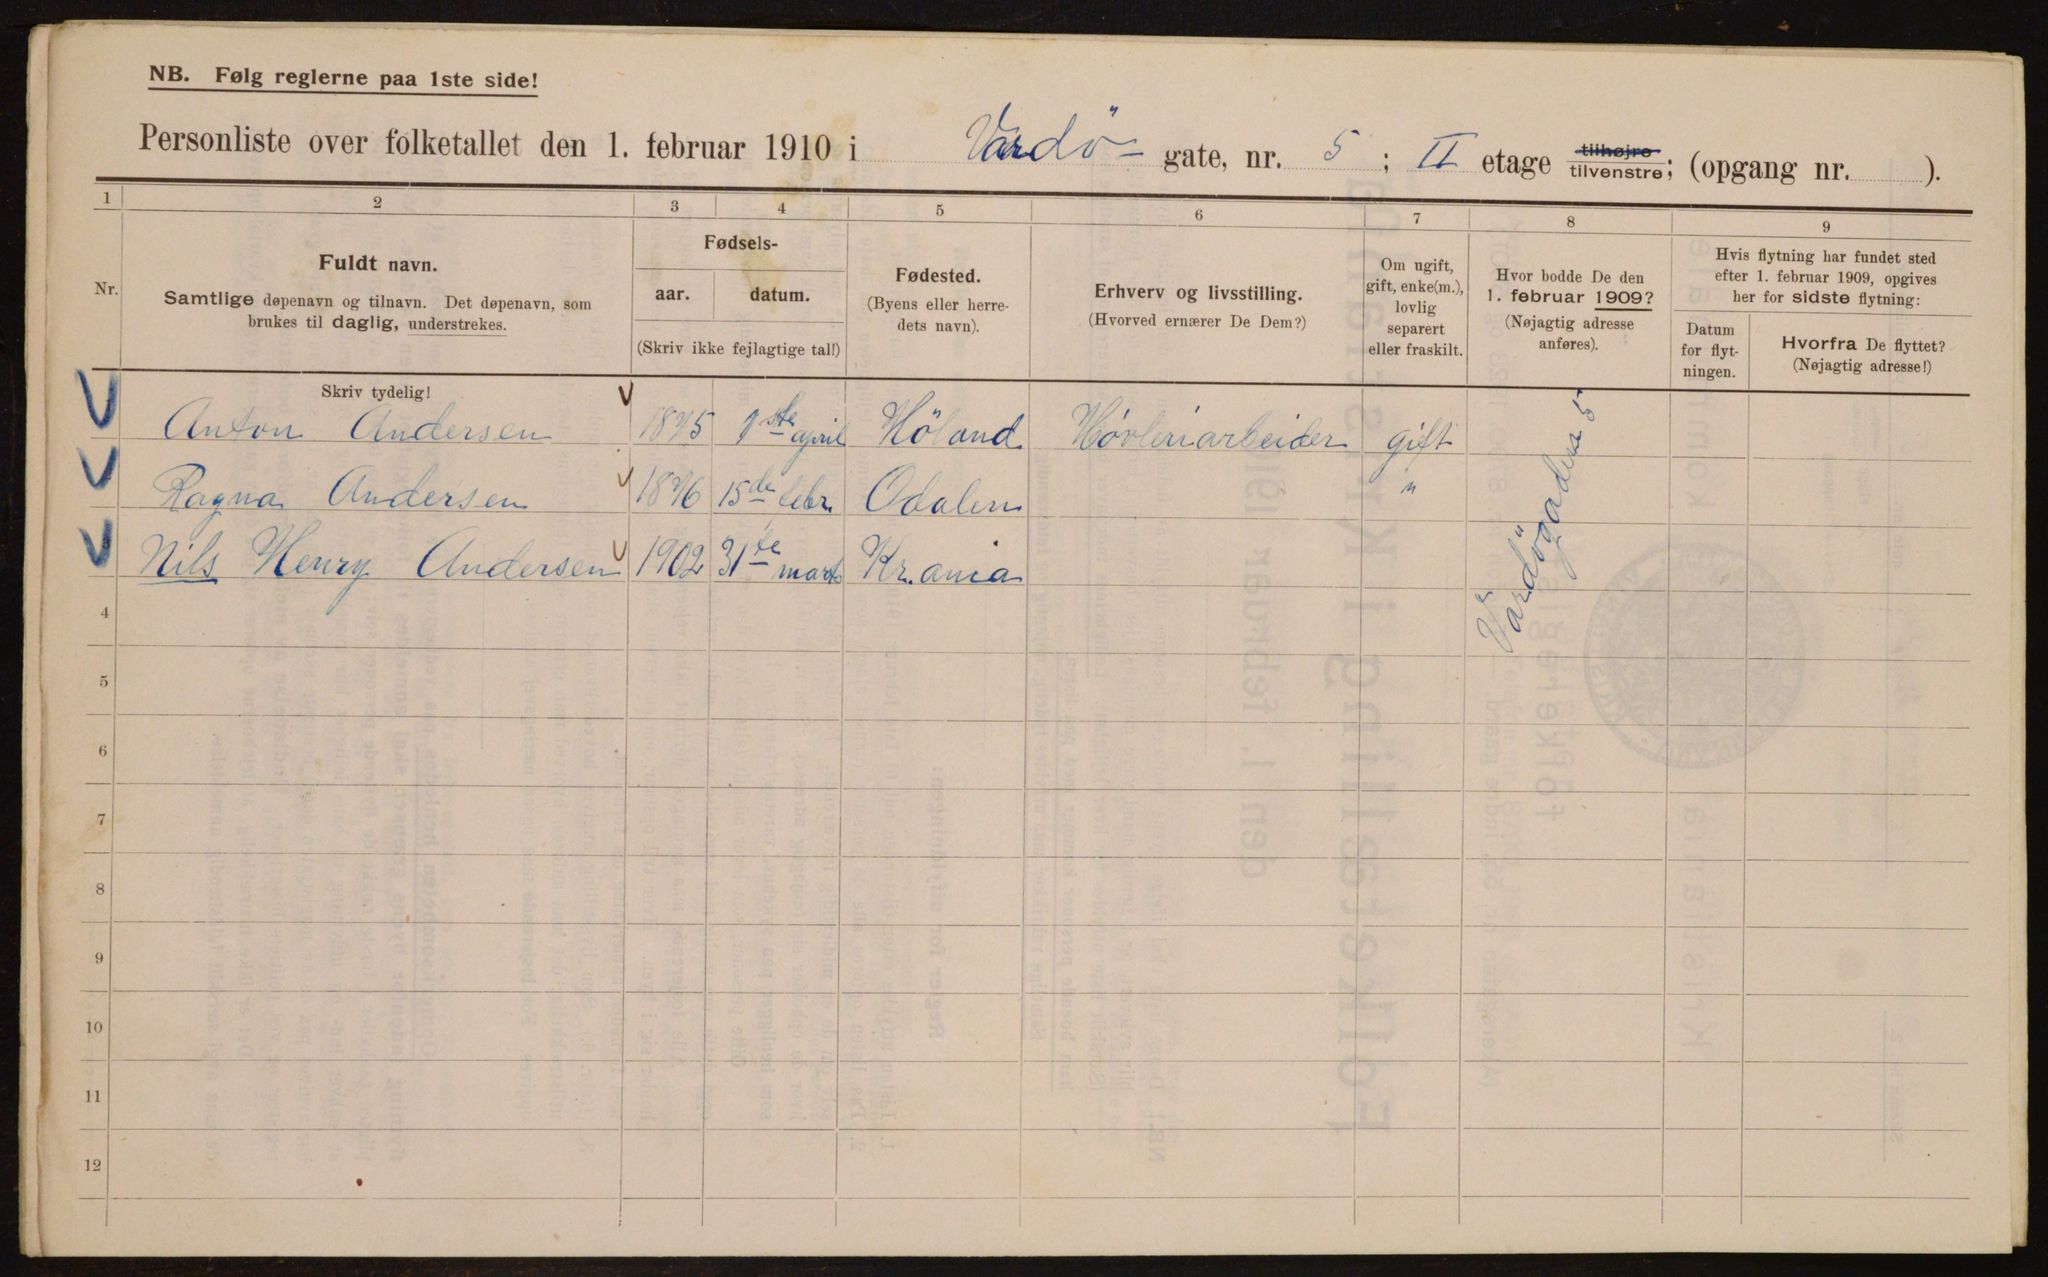 NB. Følg reglerne paa 1ste side!
Personliste over folketallet den 1. februar 1910 i Vardö- gate, nr. 5; II etage tilhøjre/tilvenstre; (opgang nr. ).
1 2 3 4 5 6 7 8 9
Nr.
Fuldt navn.
Samtlige døpenavn og tilnavn. Det døpenavn, som
brukes til daglig, understrekes.
Fødsels-
aar. datum.
(Skriv ikke fejlagtige tal!)
Fødested.
(Byens eller herre-
dets navn).
Erhverv og livsstilling.
(Hvorved ernærer De Dem?)
Om ugift,
gift, enke(m.),
lovlig
separert
eller fraskilt.
Hvor bodde De den
1. februar 1909?
(Nøjagtig adresse
anføres).
Hvis flytning har fundet sted
efter 1. februar 1909, opgives
her for sidste flytning:
Datum
for flyt-
ningen.
Hvorfra De flyttet?
(Nøjagtig adresse!)
Skriv tydelig!
Anton Andersen 1875 1ste april Höland Hövleriarbeider gift
Ragna Andersen 1876 15de febr. Odalen "
Nils Henry Andersen 1902 31te marts Kr.ania
Vardögaden 5
4
5
6
7
8
9
10
11
12